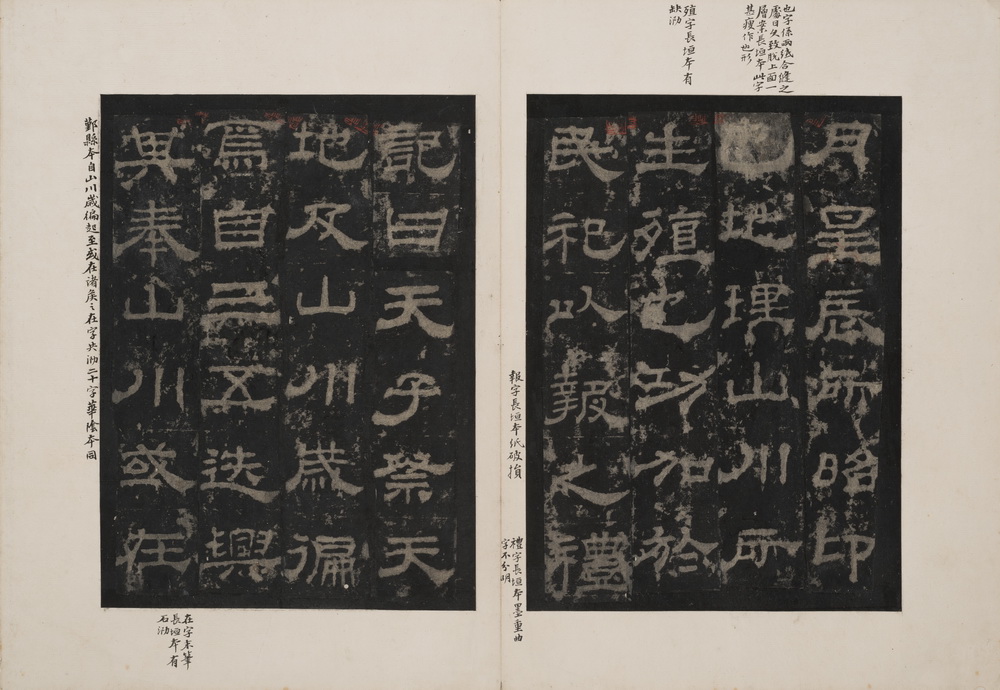 也字係兩紙合縫之
處日久致脫上面一
層案長垣本此字
甚瘦作也形
殖字長垣本有
缺泐
月星辰所昭卬
也地理山川所
生殖也功加於
民祀以報之禮
報字長垣本紙破損
禮字長垣本墨重曲
字不分明
記曰天子祭天
地及山川歲徧
焉自三五迭興
其奉山川或在
在字末筆
長垣本有
石泐
鄞縣本自山川歲徧起至或在諸侯之在字共泐二十字華陰本同